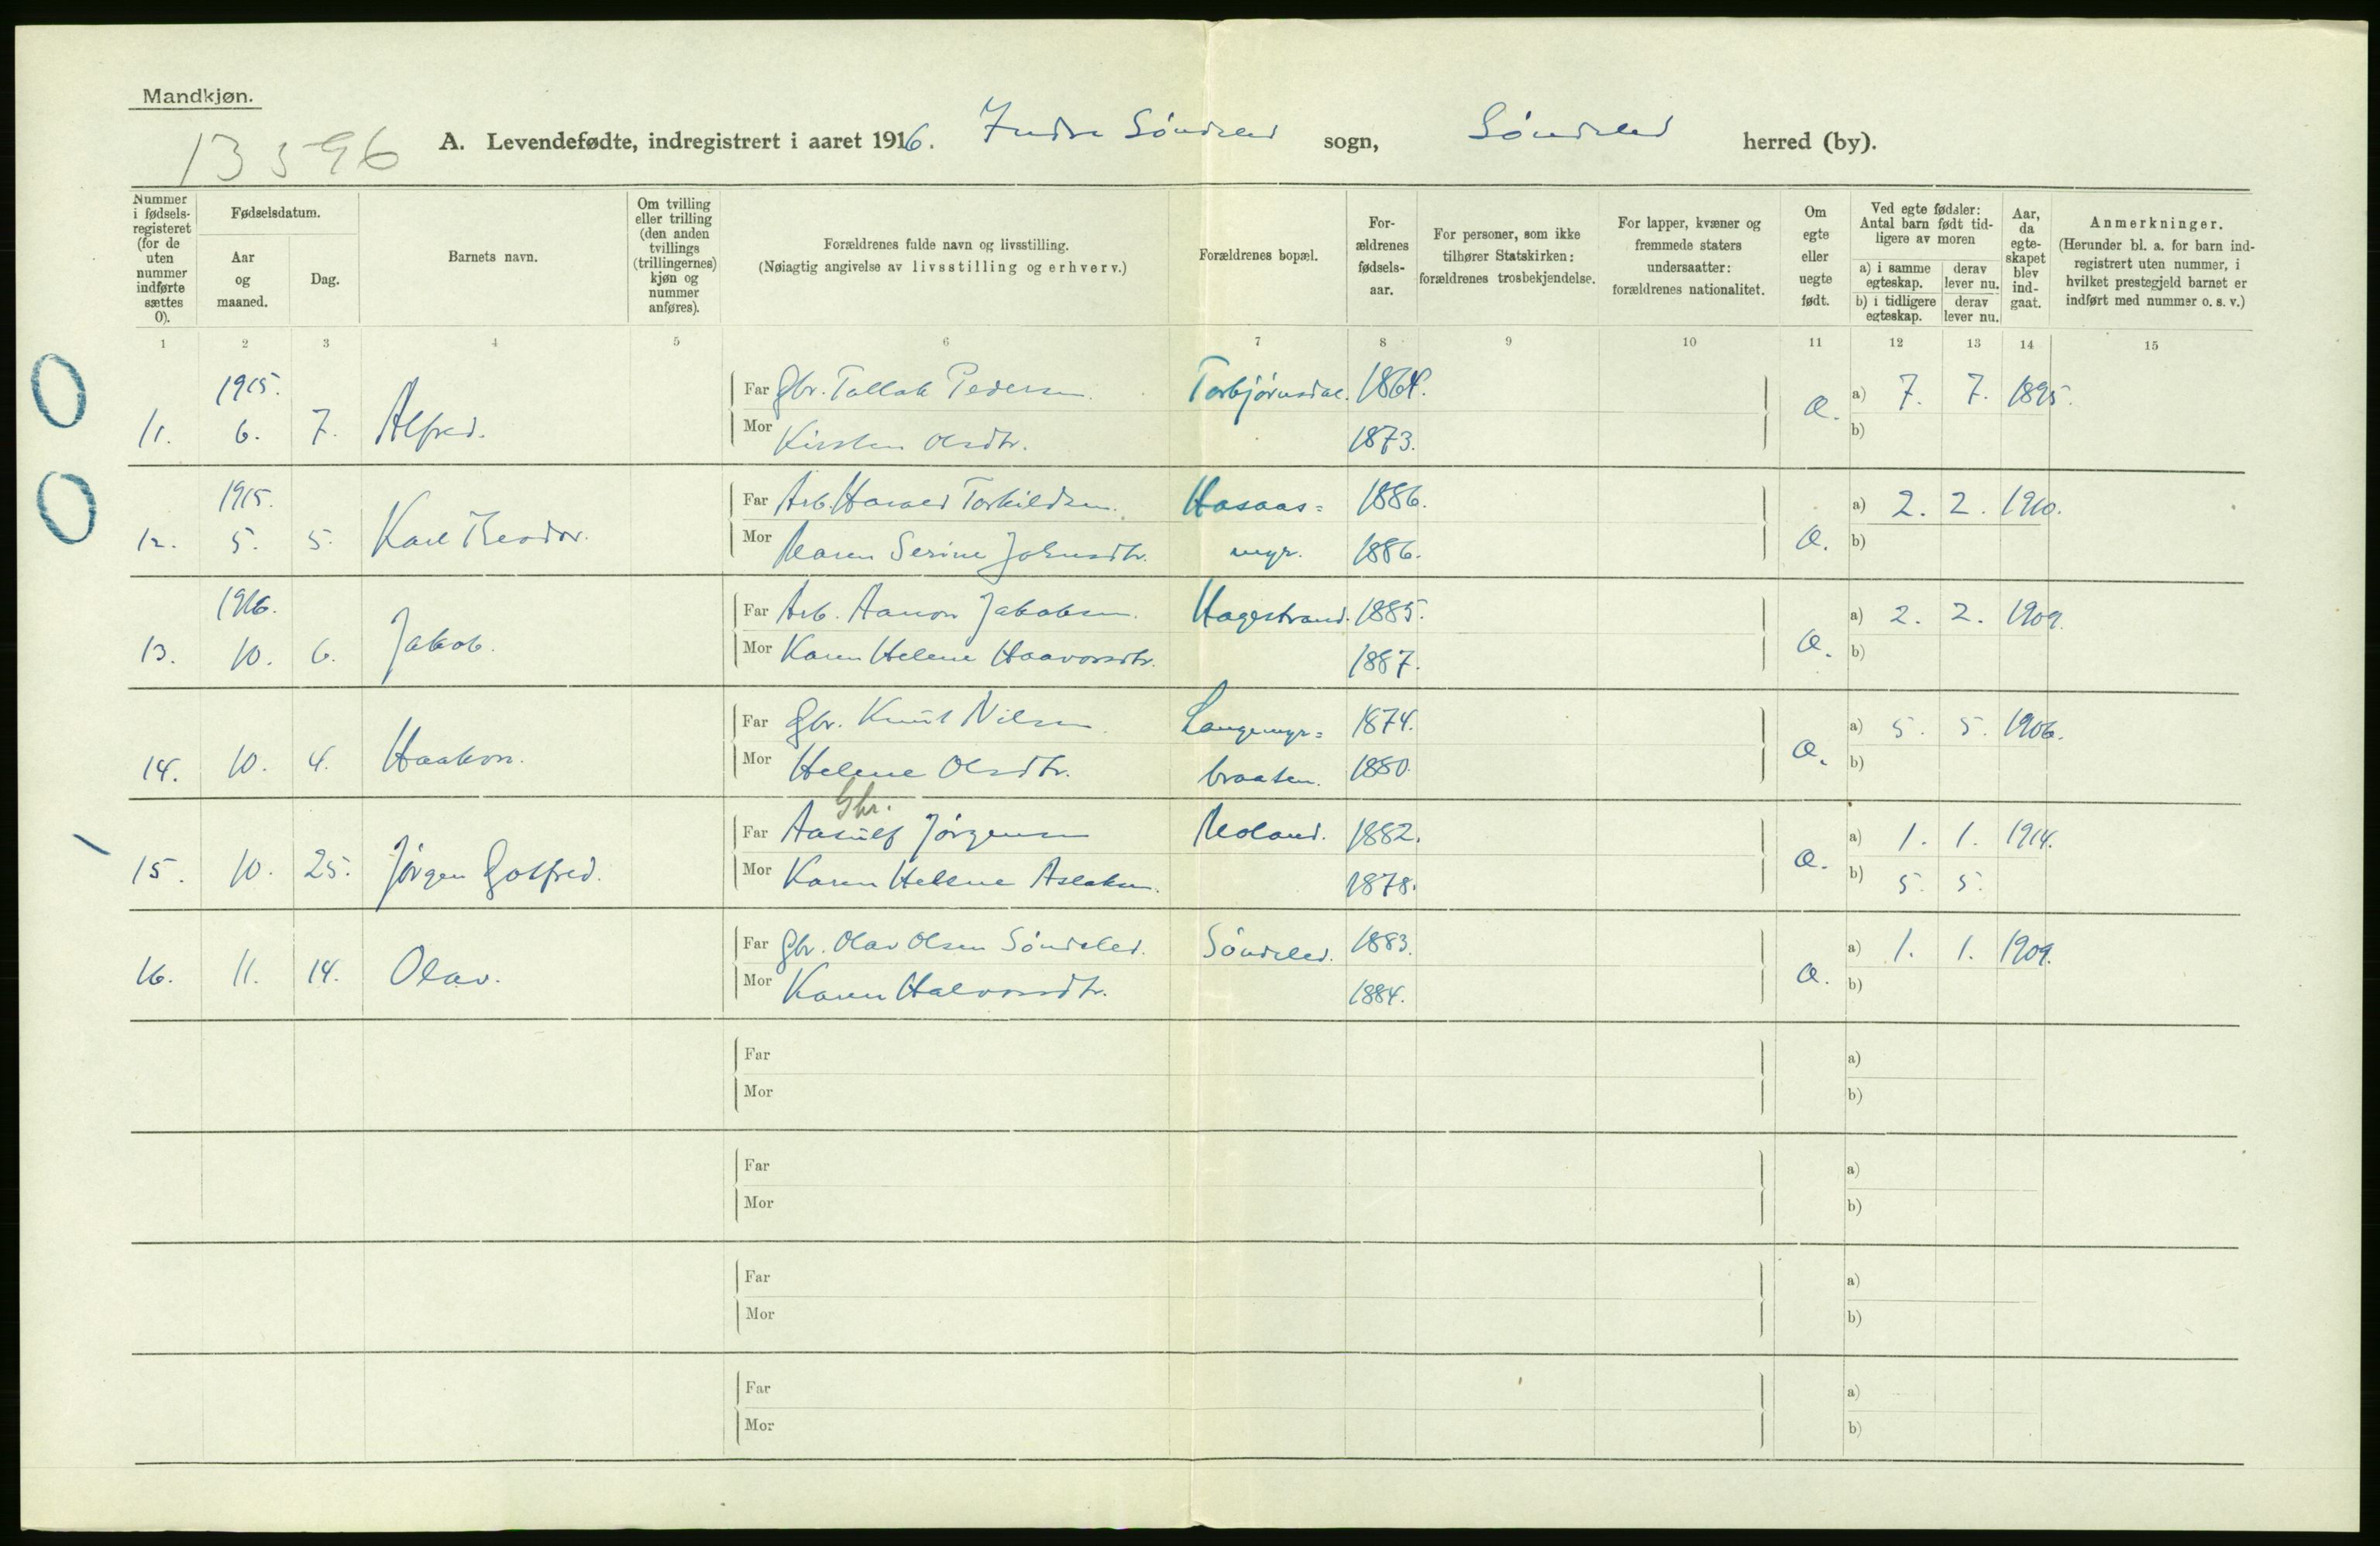 Mandkjøn.
13596
A. Levendefødte, indregistrert i aaret 1916. Indre Söndeled sogn, Söndeled herred (by).
Nummer i fødselsregisteret (for de uten nummer indførte sættes 0).
Fødselsdatum.
Aar og maaned.
Dag.
Barnets navn.
Om tvilling eller trilling (den anden tvillings (trillingernes) kjøn og nummer anføres).
Forældrenes fulde navn og livsstilling.
(Nøiagtig angivelse av livsstilling og erhverv.)
Forældrenes bopæl.
For-
ældrenes
fødsels-
aar.
For personer, som ikke
tilhører Statskirken:
forældrenes trosbekjendelse.
For lapper, kvæner og
fremmede staters
undersaatter:
forældrenes nationalitet.
Om
egte
eller
uegte
født.
Ved egte fødsler:
Antal barn født tid-
ligere av moren
a) i samme egteskap.
derav lever nu.
b) i tidligere egteskap.
derav lever nu.
Aar, da egte-skapet blev ind-gaat.
Anmerkninger.
(Herunder bl. a. for barn ind-
registrert uten nummer, i
hvilket prestegjeld barnet er
indført med nummer o. s. v.)
1 2 3 4 5 6 7 8 9 10 11 12 13 14 15
0
1915.
Far Gbr. Tallak Pedersen. Torbjörnsdal. 1864. a) 7. 7. 1895.
11. 6. 7. Alfred. Mor Kirsten Olsdtr. 1873. Æ. b)
0
1915.
Far Arb. Harald Torkildsen. Hasaas= 1886. a) 2. 2. 1910.
12. 5. 5. Karl Teodor. Mor Maren Serine Johnsdtr. myr. 1886. Æ. b)
1916.
Far Arb. Aanon Jakobsen. Hagestrand. 1885. a) 2. 2. 1909.
13. 10. 6. Jakob. Mor Karen Helene Haavorsdtr. 1887. Æ. b)
Far Gbr. Knut Nilsen. Langemyr= 1874. a) 5. 5. 1906.
14. 10. 4. Haakon. Mor Helene Olsdtr. braaten. 1880. Æ. b)
Gbr.
Far Aasulf Jörgensen Moland. 1882. a) 1. 1. 1914.
15. 10. 25. Jörgen Gotfred. Mor Karen Helene Aslaksen. 1878. Æ. b) 5. 5.
Far Gbr. Olav Olsen Söndeled. Söndeled. 1883. a) 1. 1. 1909.
16. 11. 14. Olav. Mor Karen Halvorsdtr. 1884. Æ. b)
Far a)
Mor b)
Far a)
Mor b)
Far a)
Mor b)
Far a)
Mor b)